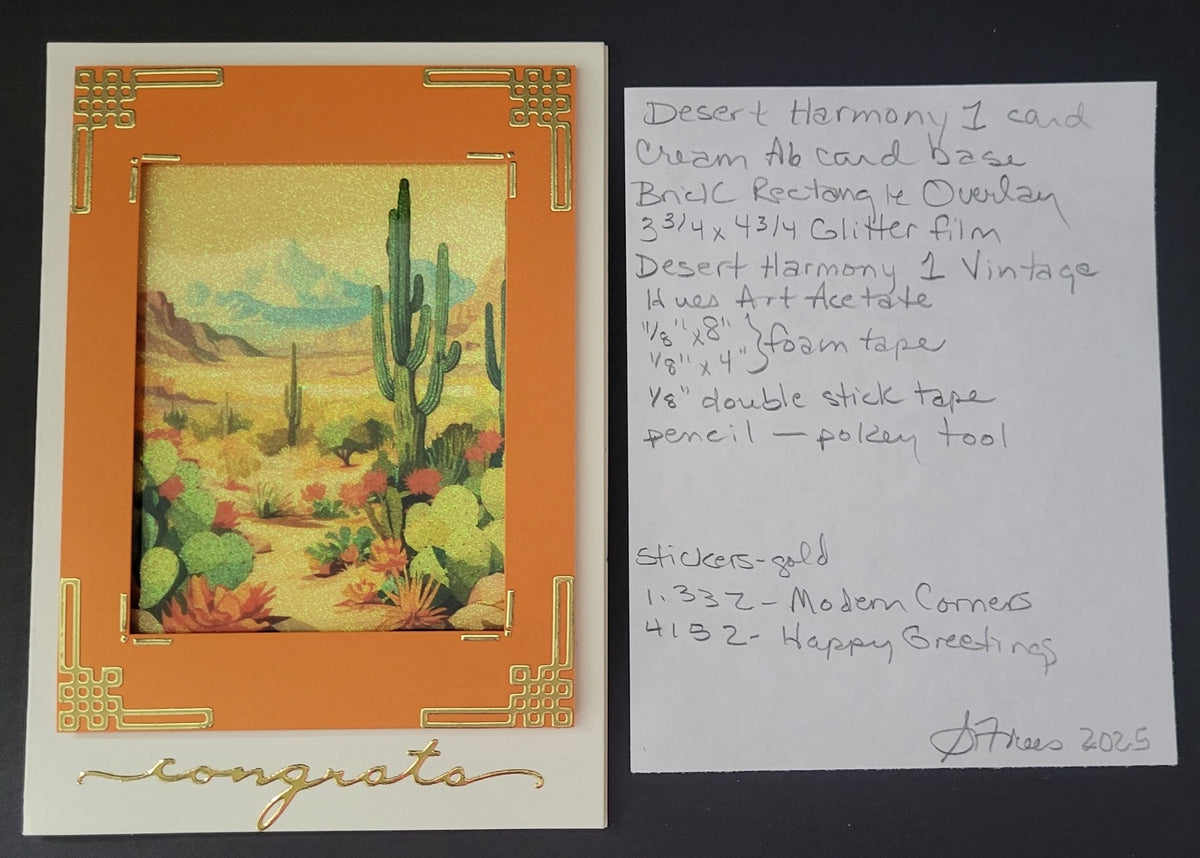 congrats
Desert Harmony 1 card
Cream A6 card base
Brick Rectangle Overlay
3 3/4 x 4 3/4 Glitter film
Desert Harmony 1 Vintage
Hues Art Acetate
1/8" x 8" } foam tape
1/8" x 4"
1/8" double stick tape
pencil — pokey tool
stickers-gold
1.332 - Modern Corners
4152 - Happy Greetings
2025